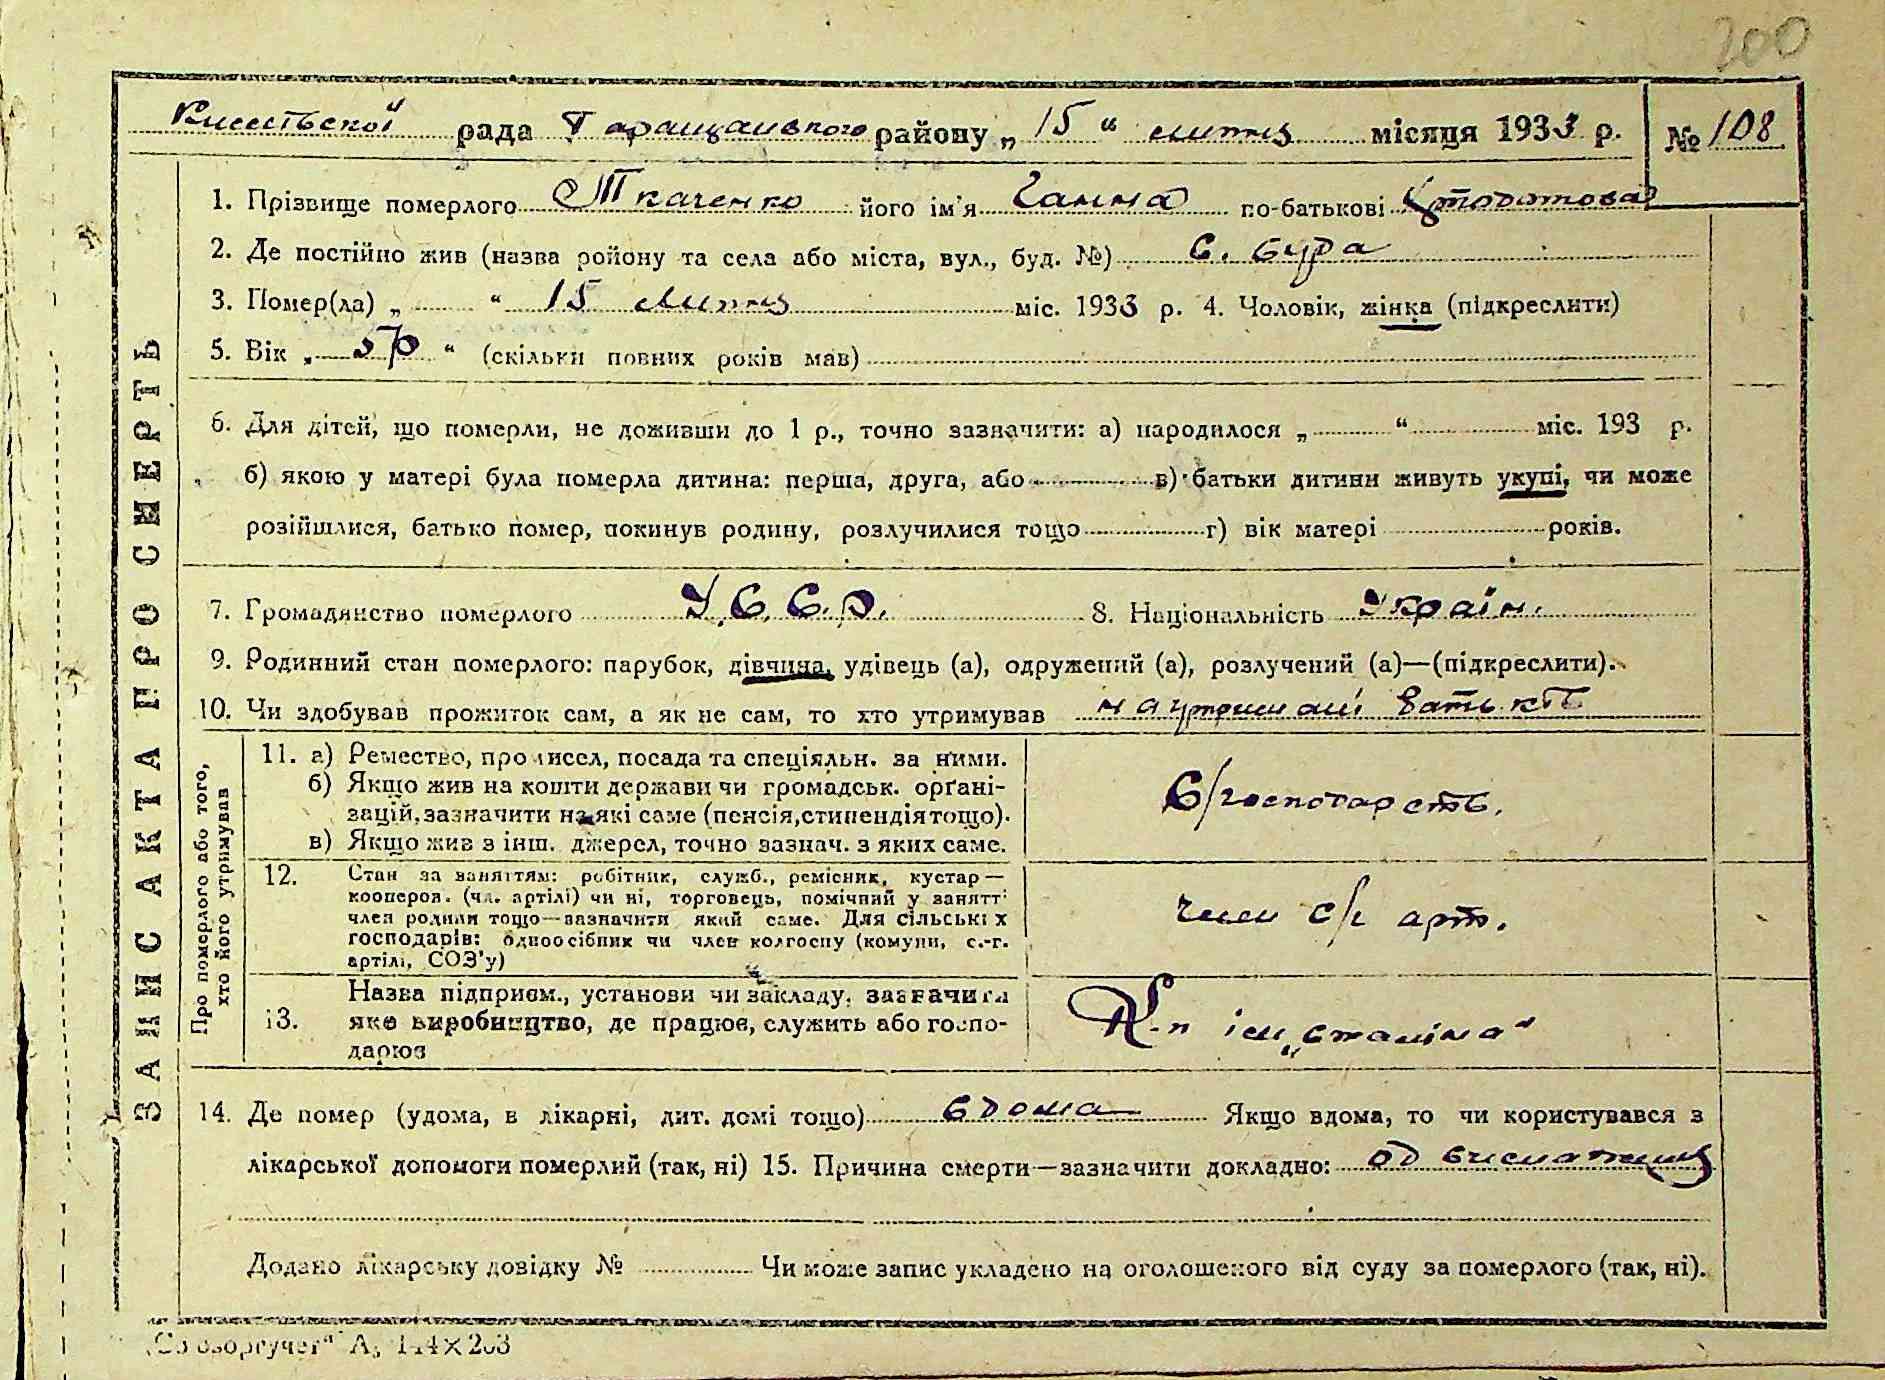 200
рада Таращанского району „ 15 “ липня місяця 1933 р. № 108
1. Прізвище померлого Ткаченко його ім'я Ганна по-батькові
2. Де постійно жив (назва ройону та села або міста, вул., буд. №) с. Бура
3. Помер(ла) „ “ 15 липня міс. 1933 р. 4. Чоловік, жінка (підкреслити)
5. Вік „ 5 р “ (скільки повних років мав)
6. Для дітей, що померли, не доживши до 1 р., точно зазначити: а) народилося „ “ міс. 193 р.
б) якою у матері була померла дитина: перша, друга, або в) батьки дитини живуть укупі, чи може
розійшлися, батько помер, покинув родину, розлучилися тощо г) вік матері років.
7. Громадянство померлого У.С.С.Р. 8. Національність Україн.
9. Родинний стан померлого: парубок, дівчина, удівець (а), одружений (а), розлучений (а)—(підкреслити).
10. Чи здобував прожиток сам, а як не сам, то хто утримував на утриманні батьків
ЗАПИС АКТА ПРО СМЕРТЬ
Про померлого або того,
хто його утримував
11. а) Ремество, промисел, посада та спеціяльн. за ними.
б) Якщо жив на кошти держави чи громадськ. орґані-
зацій, зазначити на які саме (пенсія, стипендія тощо).
в) Якщо жив з інш. джерел, точно зазнач. з яких саме.
С/господарств.
12. Стан за заняттям: робітник, служб., ремісник, кустар —
кооперов. (чл. артілі) чи ні, торговець, помічний у занятті
член родини тощо—зазначити який саме. Для сільських
господарів: одноосібник чи член колгоспу (комуни, с.-г.
артілі, СОЗ'у)
член с/г арт.
13. Назва підприєм., установи чи закладу, зазначити
яке виробництво, де працює, служить або госпо-
дарює
К-п ім. „Сталіна“
14. Де помер (удома, в лікарні, дит. домі тощо) вдома Якщо вдома, то чи користувався з
лікарської допомоги померлий (так, ні) 15. Причина смерти—зазначити докладно: од виснаження
Додано лікарську довідку № Чи може запис укладено на оголошеного від суду за померлого (так, ні).
„Союзоргучет“ А5 144×203